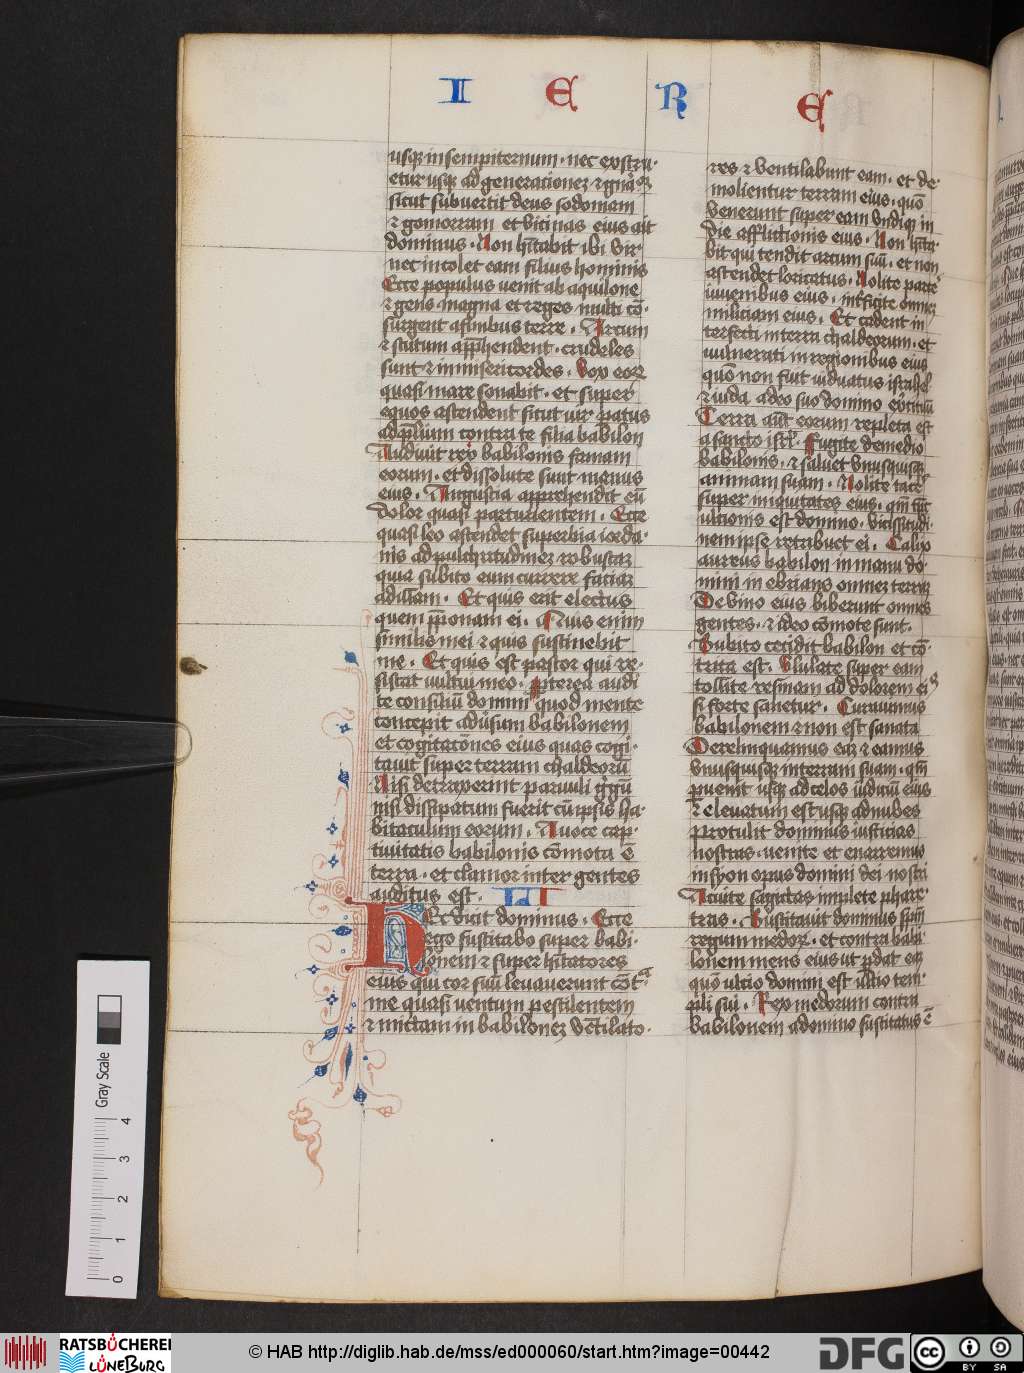 I E R E
usq in sempiternum · nec exstru·
etur usq ad generationez ⁊ gnacoz
sicut subuertit deus sodomam
⁊ gomorram et vicinas eius ait
dominus · Non hitabit ibi vir
nec incolet eam filius hominis
Ecce populus venit ab aquilone
⁊ gens magna et reges multi cō·
surgent a finibus terre · Arcum
⁊ scutum apphendent · crudeles
sunt ⁊ inmisericordes · Vox eoꝝ
quasi mare sonabit · et super
equos ascendent sicut vir patus
ad plium contra te filia babilon
Audiuit rex babilonis famam
eorum · et dissolute sunt manus
eius · Angustia apprehendit eū
dolor quasi parturientem · Ecce
quasi leo ascendet superbia iorda·
nis ad pulchritudinez robustaz
quia subito eum currere faciaz
ad illam · Et quis erit electus
quem pponam ei · Quis enim
similis mei ⁊ quis sustinebit
me · Et quis est pastor qui re·
sistat uultui meo · Pterea audi
te consiliū domini quod mente
concepit aduersum babilonem
et cogitacōnes eius quas cogi·
tauit super terram chaldeorū
Nisi detraxerint paruuli gregū
nisi dissipatum fuerit cū ipsis ha·
bitaculum eorum · A uoce cap·
tiuitatis babilonis cōmota ē
terra · et clamor inter gentes
auditus est · LI
Hec dicit dominus · Ecce
ego suscitabo super babi·
lonem ⁊ super hitatores
eius qui cor suū leuauerunt cōtª
me quasi uentum pestilentem
⁊ mittam in babilonez vētilato·
res ⁊ ventilabunt eam · et de·
molientur terram eius · quō
venerunt super eam vndiq in
die afflictionis eius · Non hita·
bit qui tendit arcum suū · et non
ascendet loricatus · Nolite parcē
iuuenibus eius · intficite omnez
militiam eius · Et cadent in·
terfecti in terra chaldeorum · et
uulnerati in regionibus eius
quō non fuit uiduatus israhel
⁊ iuda a deo suo domino exercituū
Terra aūt eorum repleta est
a sancto isrl · Fugite de medio
babilonis · ⁊ saluet vnusquisq
animam suam · Nolite tacē
super iniquitates eius · qm̄ tēps
ultionis est domino · vicissitudi·
nem ipse retribuet ei · Calix
aureus babilon in manu do·
mini in ebrians omnez terraz
De vino eius biberunt omnes
gentes · ⁊ ideo cōmote sunt ·
Subito cecidit babilon et cō·
trita est · Vlulate super eam
tollite resinam ad dolorem eiꝰ
si forte sanetur · Curauimus
babilonem ⁊ non est sanata
Derelinquamus eaz ⁊ eamus
vnusquisq in terram suam · qm̄
puenit usq ad celos iudiciū eius
⁊ eleuatum est usq ad nubes
Protulit dominus iusticias
nostras · uenite et enarremus
in syon opus domini dei nostri
Acuite sagittas implete phare·
tras · Suscitauit dominus spm̄
regum medoꝝ · et contra babi·
lonem mens eius ut pdat eaz
quō ultio domini est ultio tem·
pli sui · Rex medorum contra
babilonem a domino suscitatus ē
Gray Scale
0 1 2 3 4
RATSBÜCHEREI
LÜNEBURG
© HAB http://diglib.hab.de/mss/ed000060/start.htm?image=00442
DFG
cc BY SA